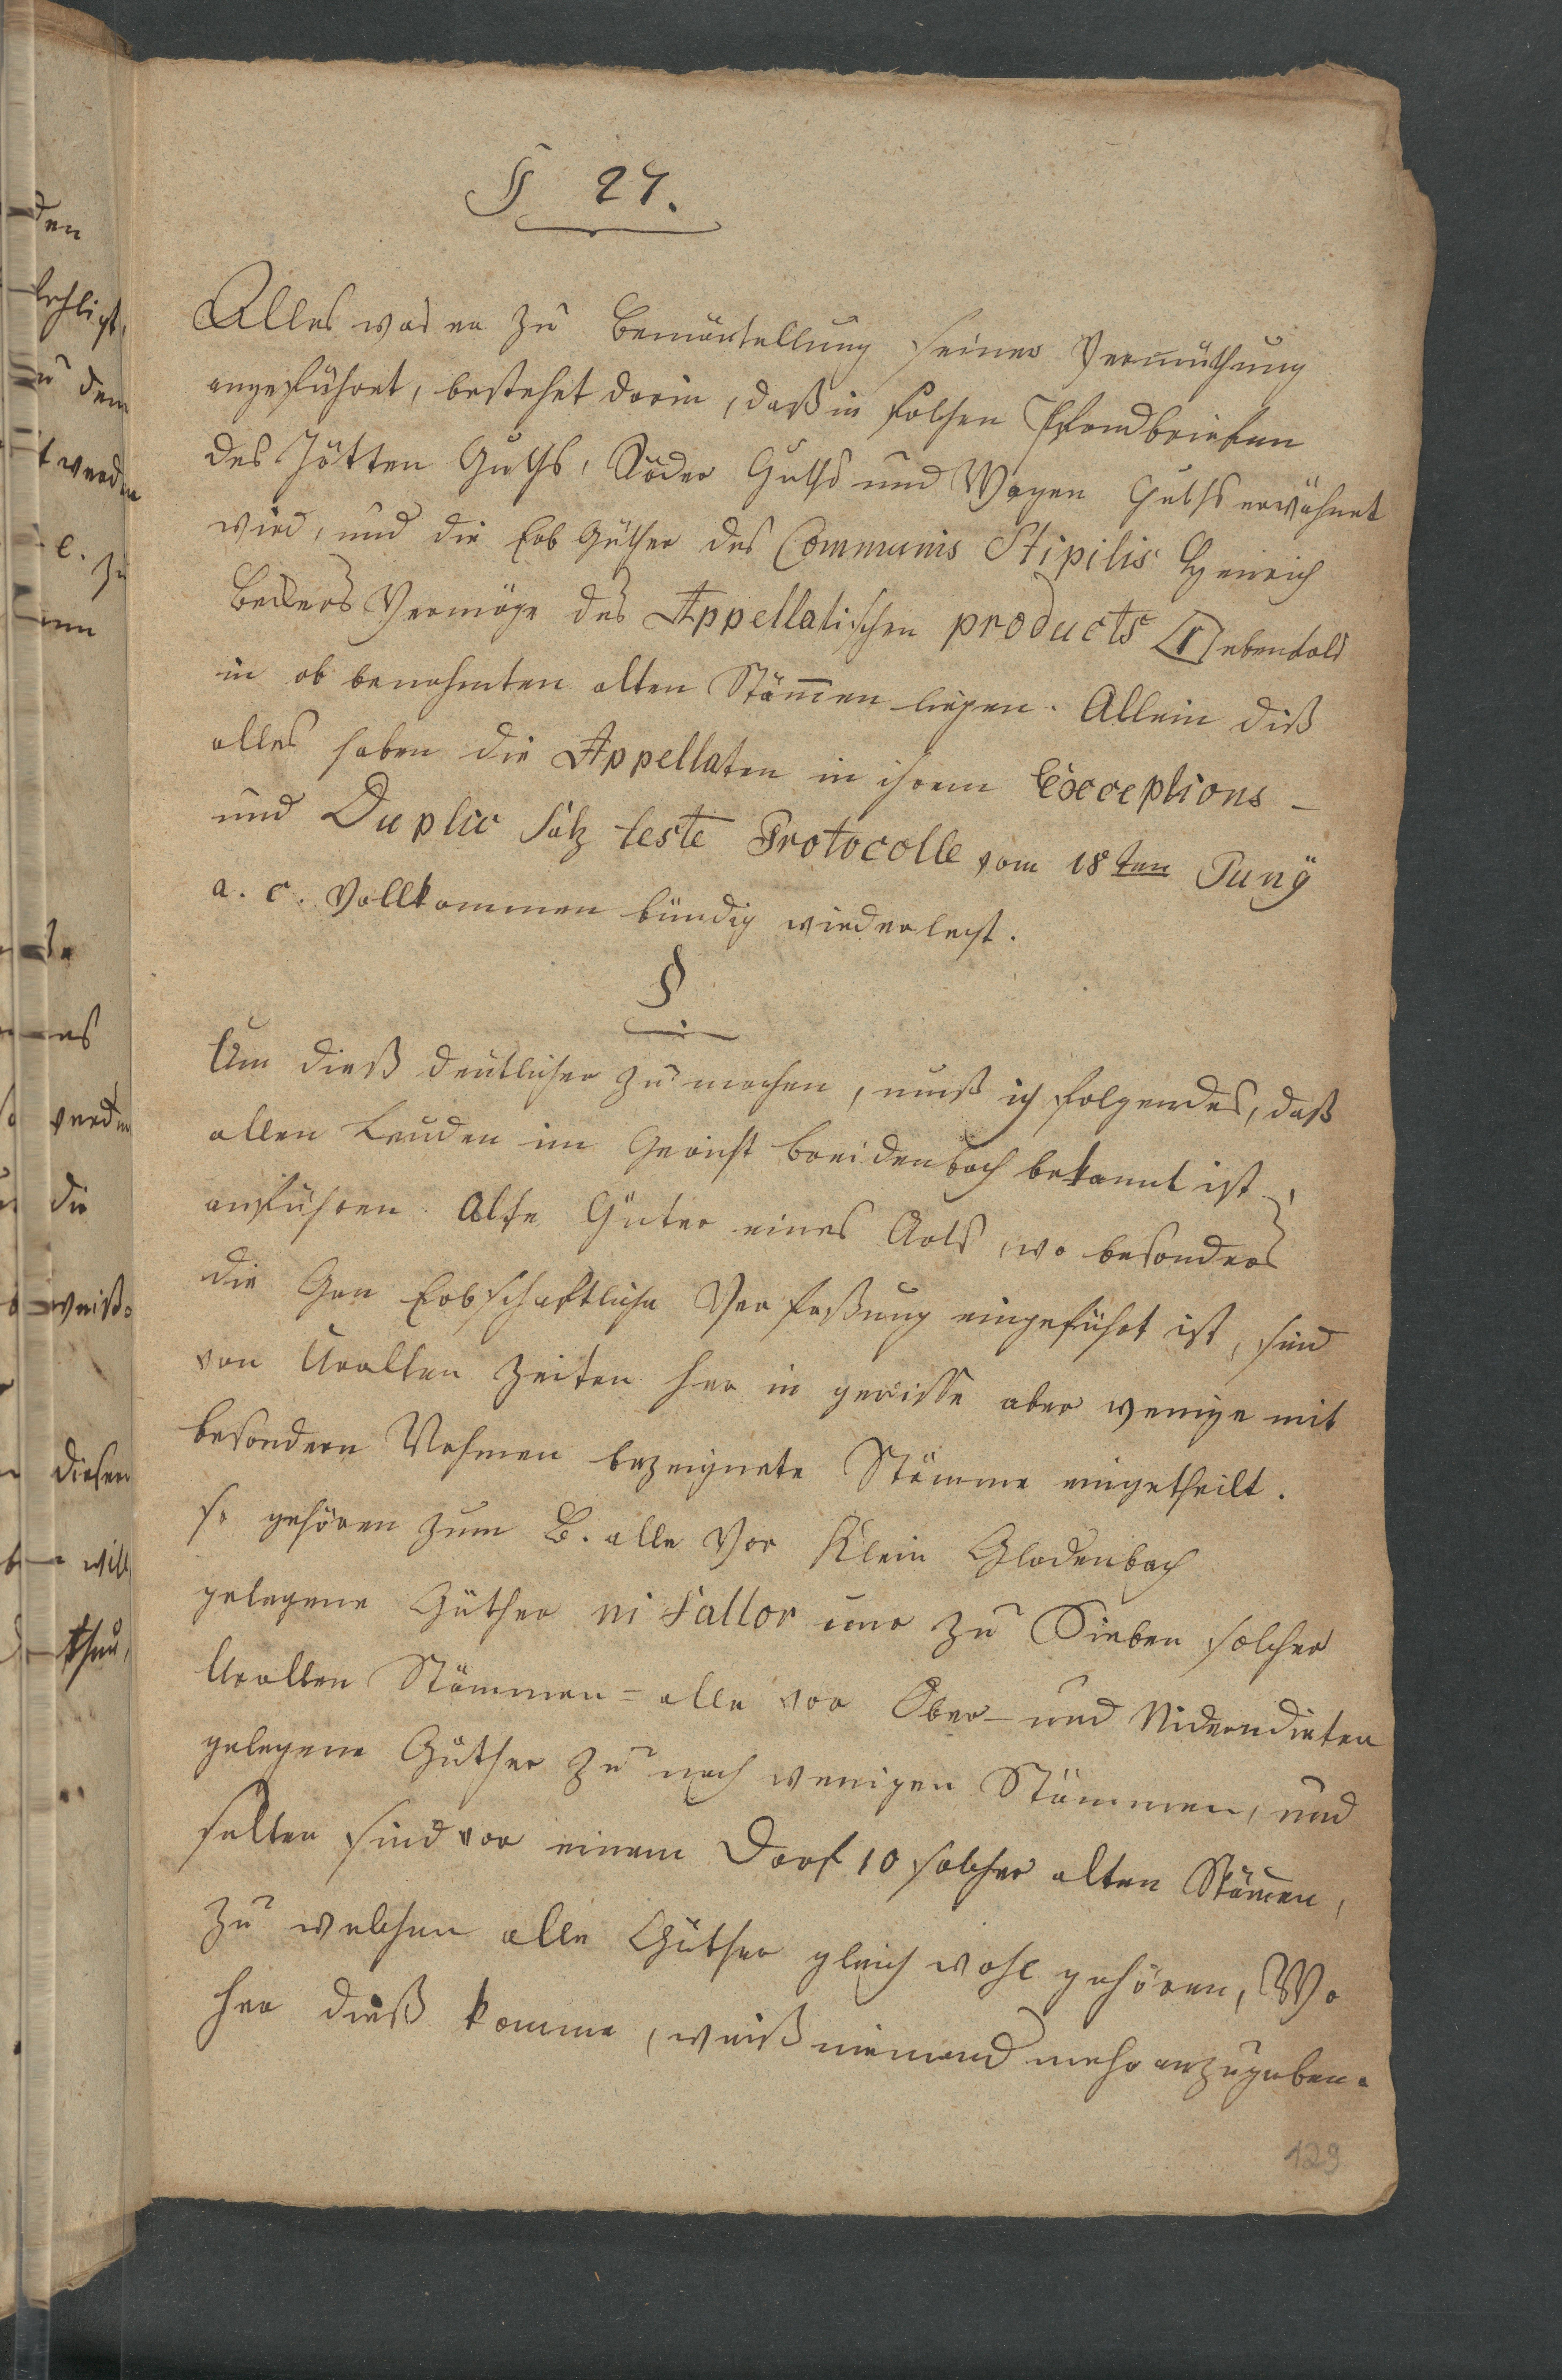 § 27.
Alles was er zu Bemäntellung seiner Vermuthung
angeführet, bestehet darin, daß in solchen Pfandbriefen
des Jötten Guths, Röder Guths und Wagen Guths erwähnet
wird, und die Erb Güther des Communis Stipitis Henrich
Beckers Vermöge des Appellatischen products [1] ebenfals
in ob benahmten alten Stämen liegen. Allein diß
alles haben die Appellaten in ihrem Exceptions -
und Duplic satz teste Protocolle vom 18ten Junÿ
a. c. Vollkommen bündig wiederlegt.
§
Um dieß deutlicher zu machen, muß ich folgendes, daß
allen Leuden im Gericht Breidenbach bekannt ist,
anführen. Alle Güter eines Orts, wo besonders
die Gan Erbschaftliche Verfaßung eingeführt ist, sind
von Uralten Zeiten her in gewisse aber wenige mit
besondern Nahmen bezeignete Stämme eingetheilt.
so gehören zum B. alle Vor Klein Gladenbach
gelegene Güther ni fallor nur zu Sieben solcher
Uralten Stämmen = alle vor Ober- und Niderndieten
gelegene Güther zu noch wenigen Stämmen, und
selten sind vor einem Dorf 10 solcher alten Stämen,
zu welchen alle Güther gleich wohl gehören, Wo
her dieß komme, weiß niemand mehr anzugeben.
129
den
zu dem
t werden
e. zu
es
werden
die
weiß
diesen
will
thun,